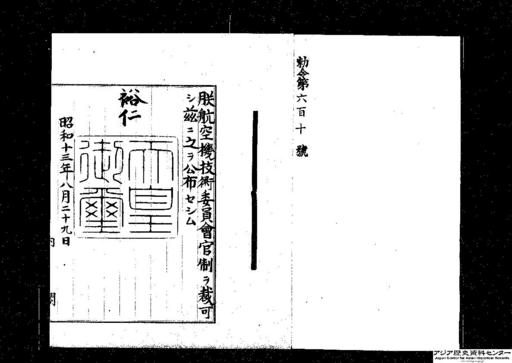 勅令第六百十號
朕航空機技術委員會官制ヲ裁可
シ茲ニ之ヲ公布セシム
裕仁
天皇
御璽
昭和十三年八月二十九日
内閣
アジア歴史資料センター
Japan Center for Asian Historical Records